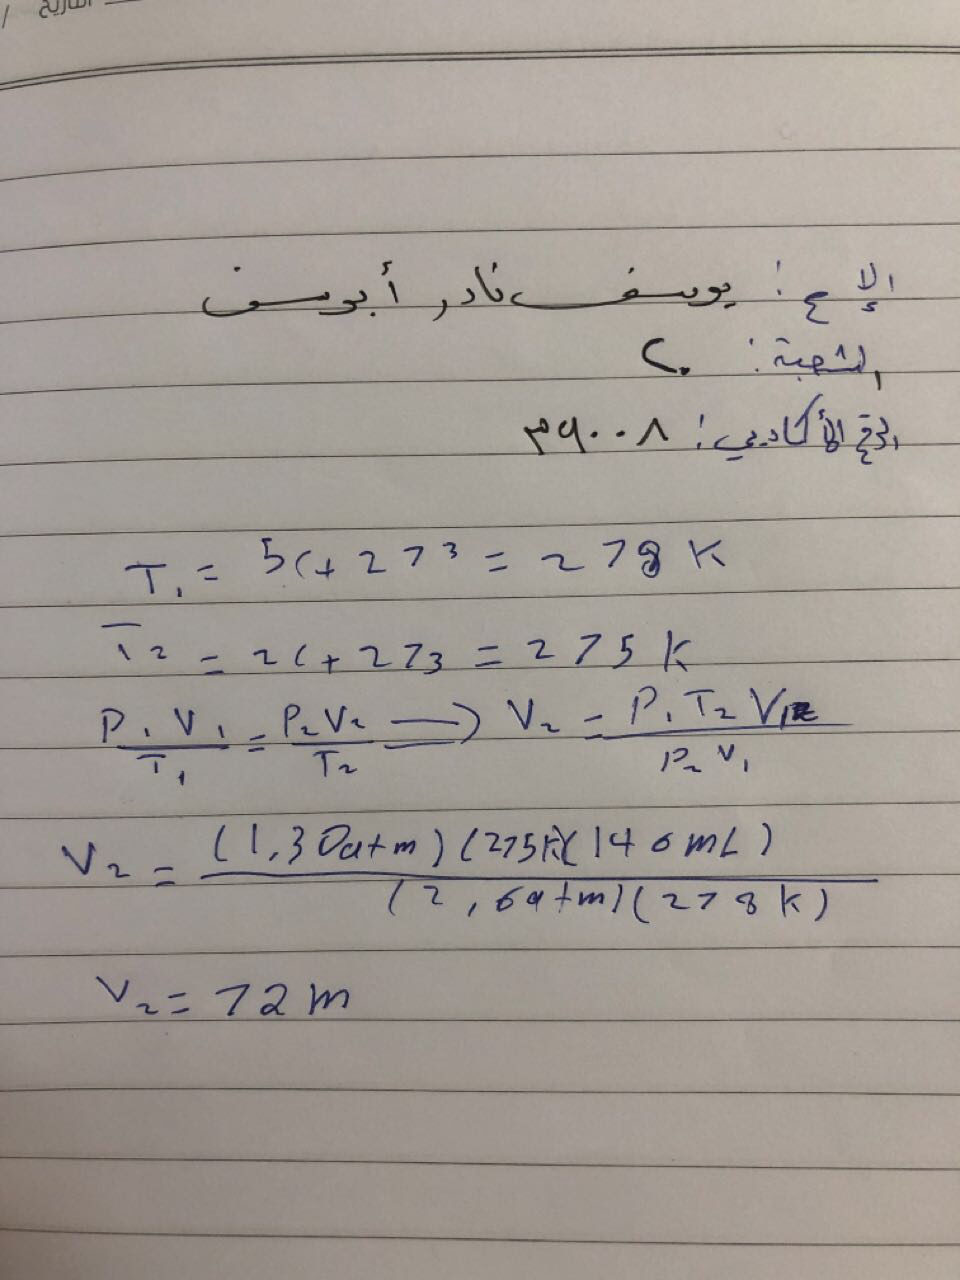 التاريخ /
الإسم : يوسف نادر أبوسف
الشعبة : ٢٠
الرقم الأكاديمي : ٣٩٠٠٨
T₁ = 5C + 273 = 278 K
T₂ = 2C + 273 = 275 K
P₁V₁/T₁ = P₂V₂/T₂ → V₂ = P₁T₂V₁/P₂V₁
V₂ = (1,30atm)(275K)(146mL)/(2,6atm)(278K)
V₂ = 72 m